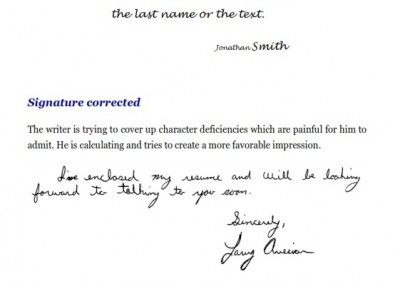 the last name or the text.
Jonathan Smith
Signature corrected
The writer is trying to cover up character deficiencies which are painful for him to
admit. He is calculating and tries to create a more favorable impression.
I've enclosed my resume and will be looking
forward to talking to you soon.
Sincerely,
Larry